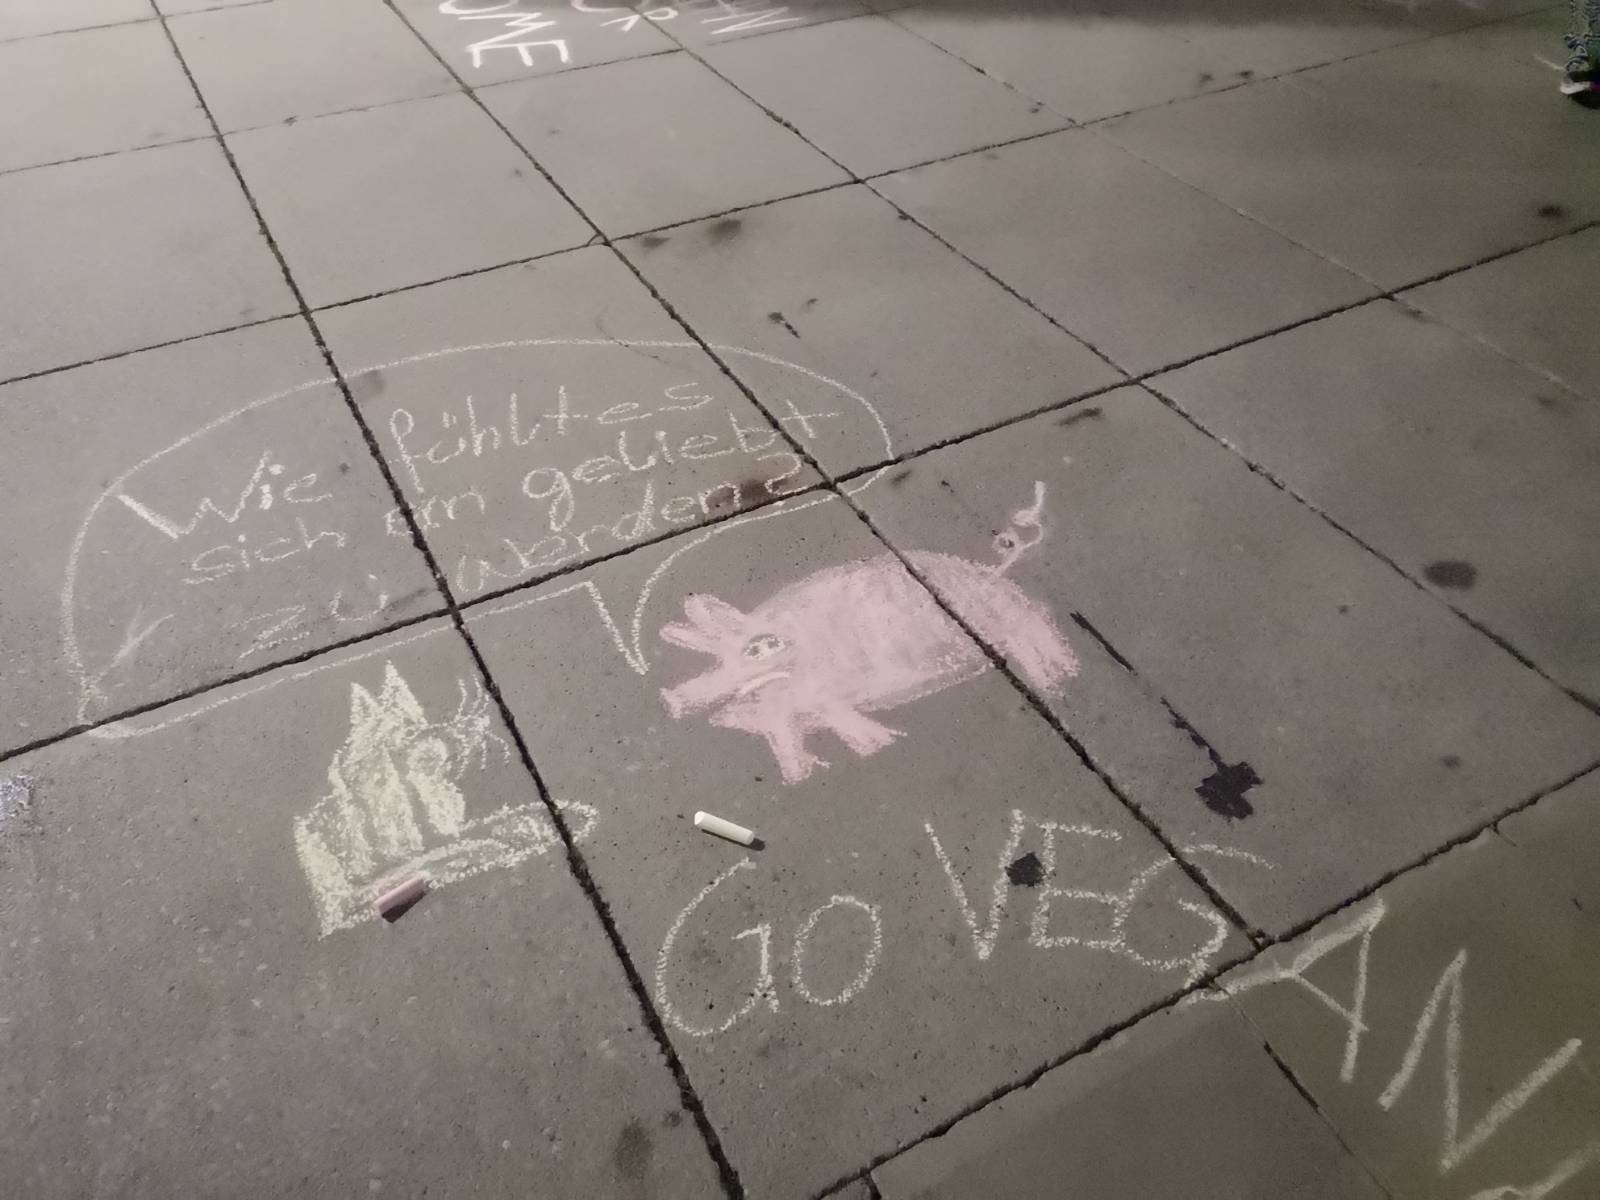 OME
Wie fühlt es
sich an geliebt
zu werden?
GO VEG
AN